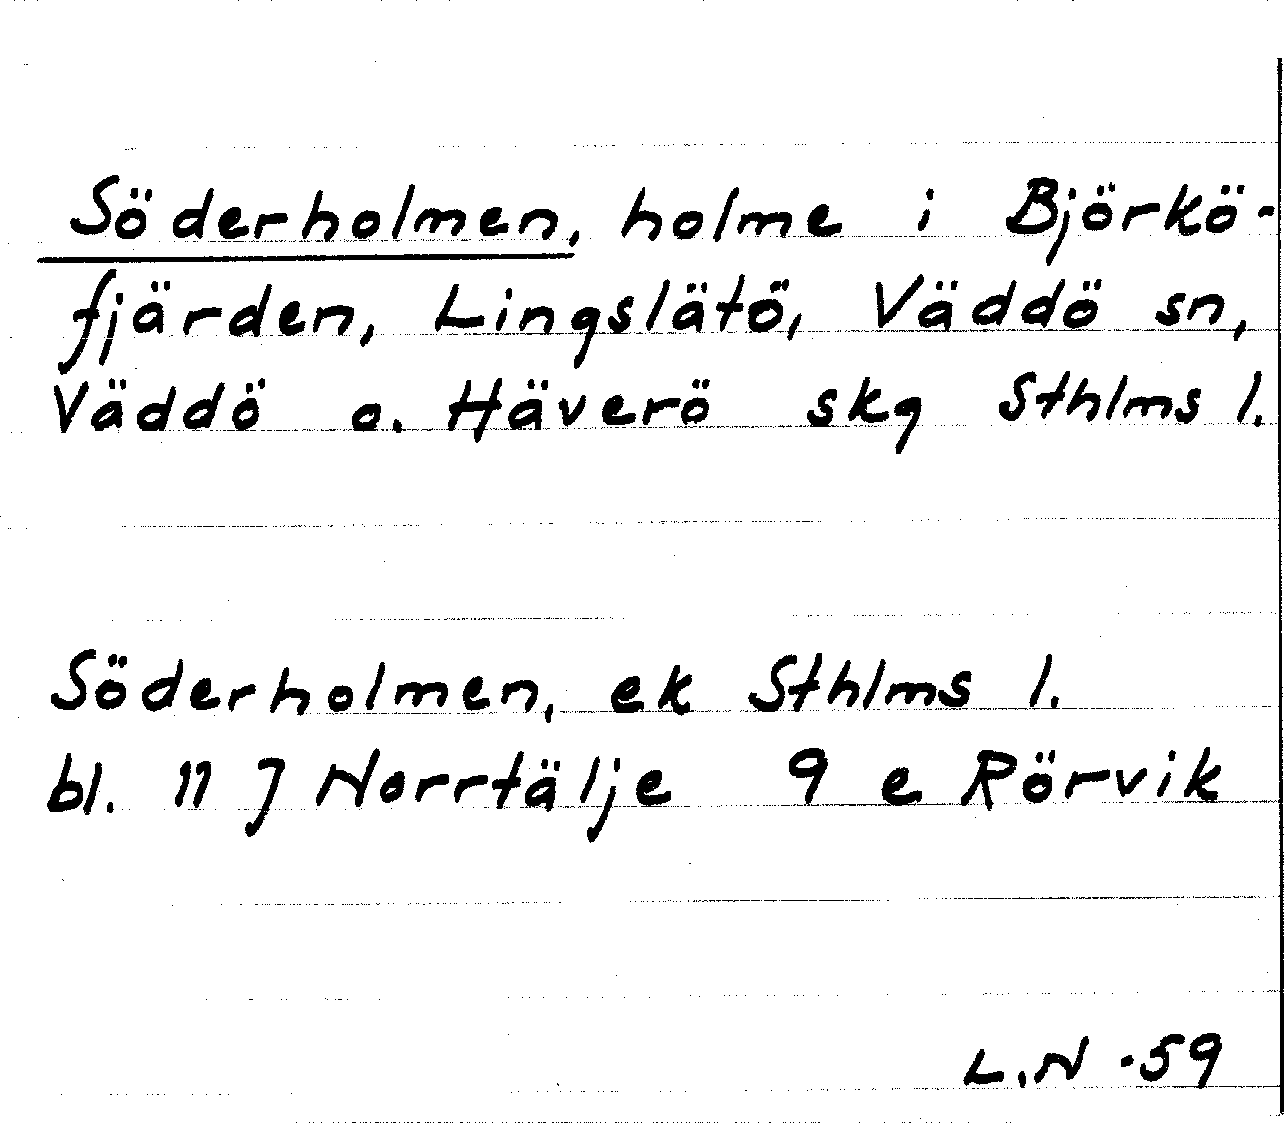 Söderholmen, holme i Björkö-
fjärden, Lingslätö, Väddö sn,
Väddö o. Häverö skg Sthlms l.
Söderholmen, ek Sthlms l.
bl. 11 J Norrtälje 9 e Rörvik
L.N -59